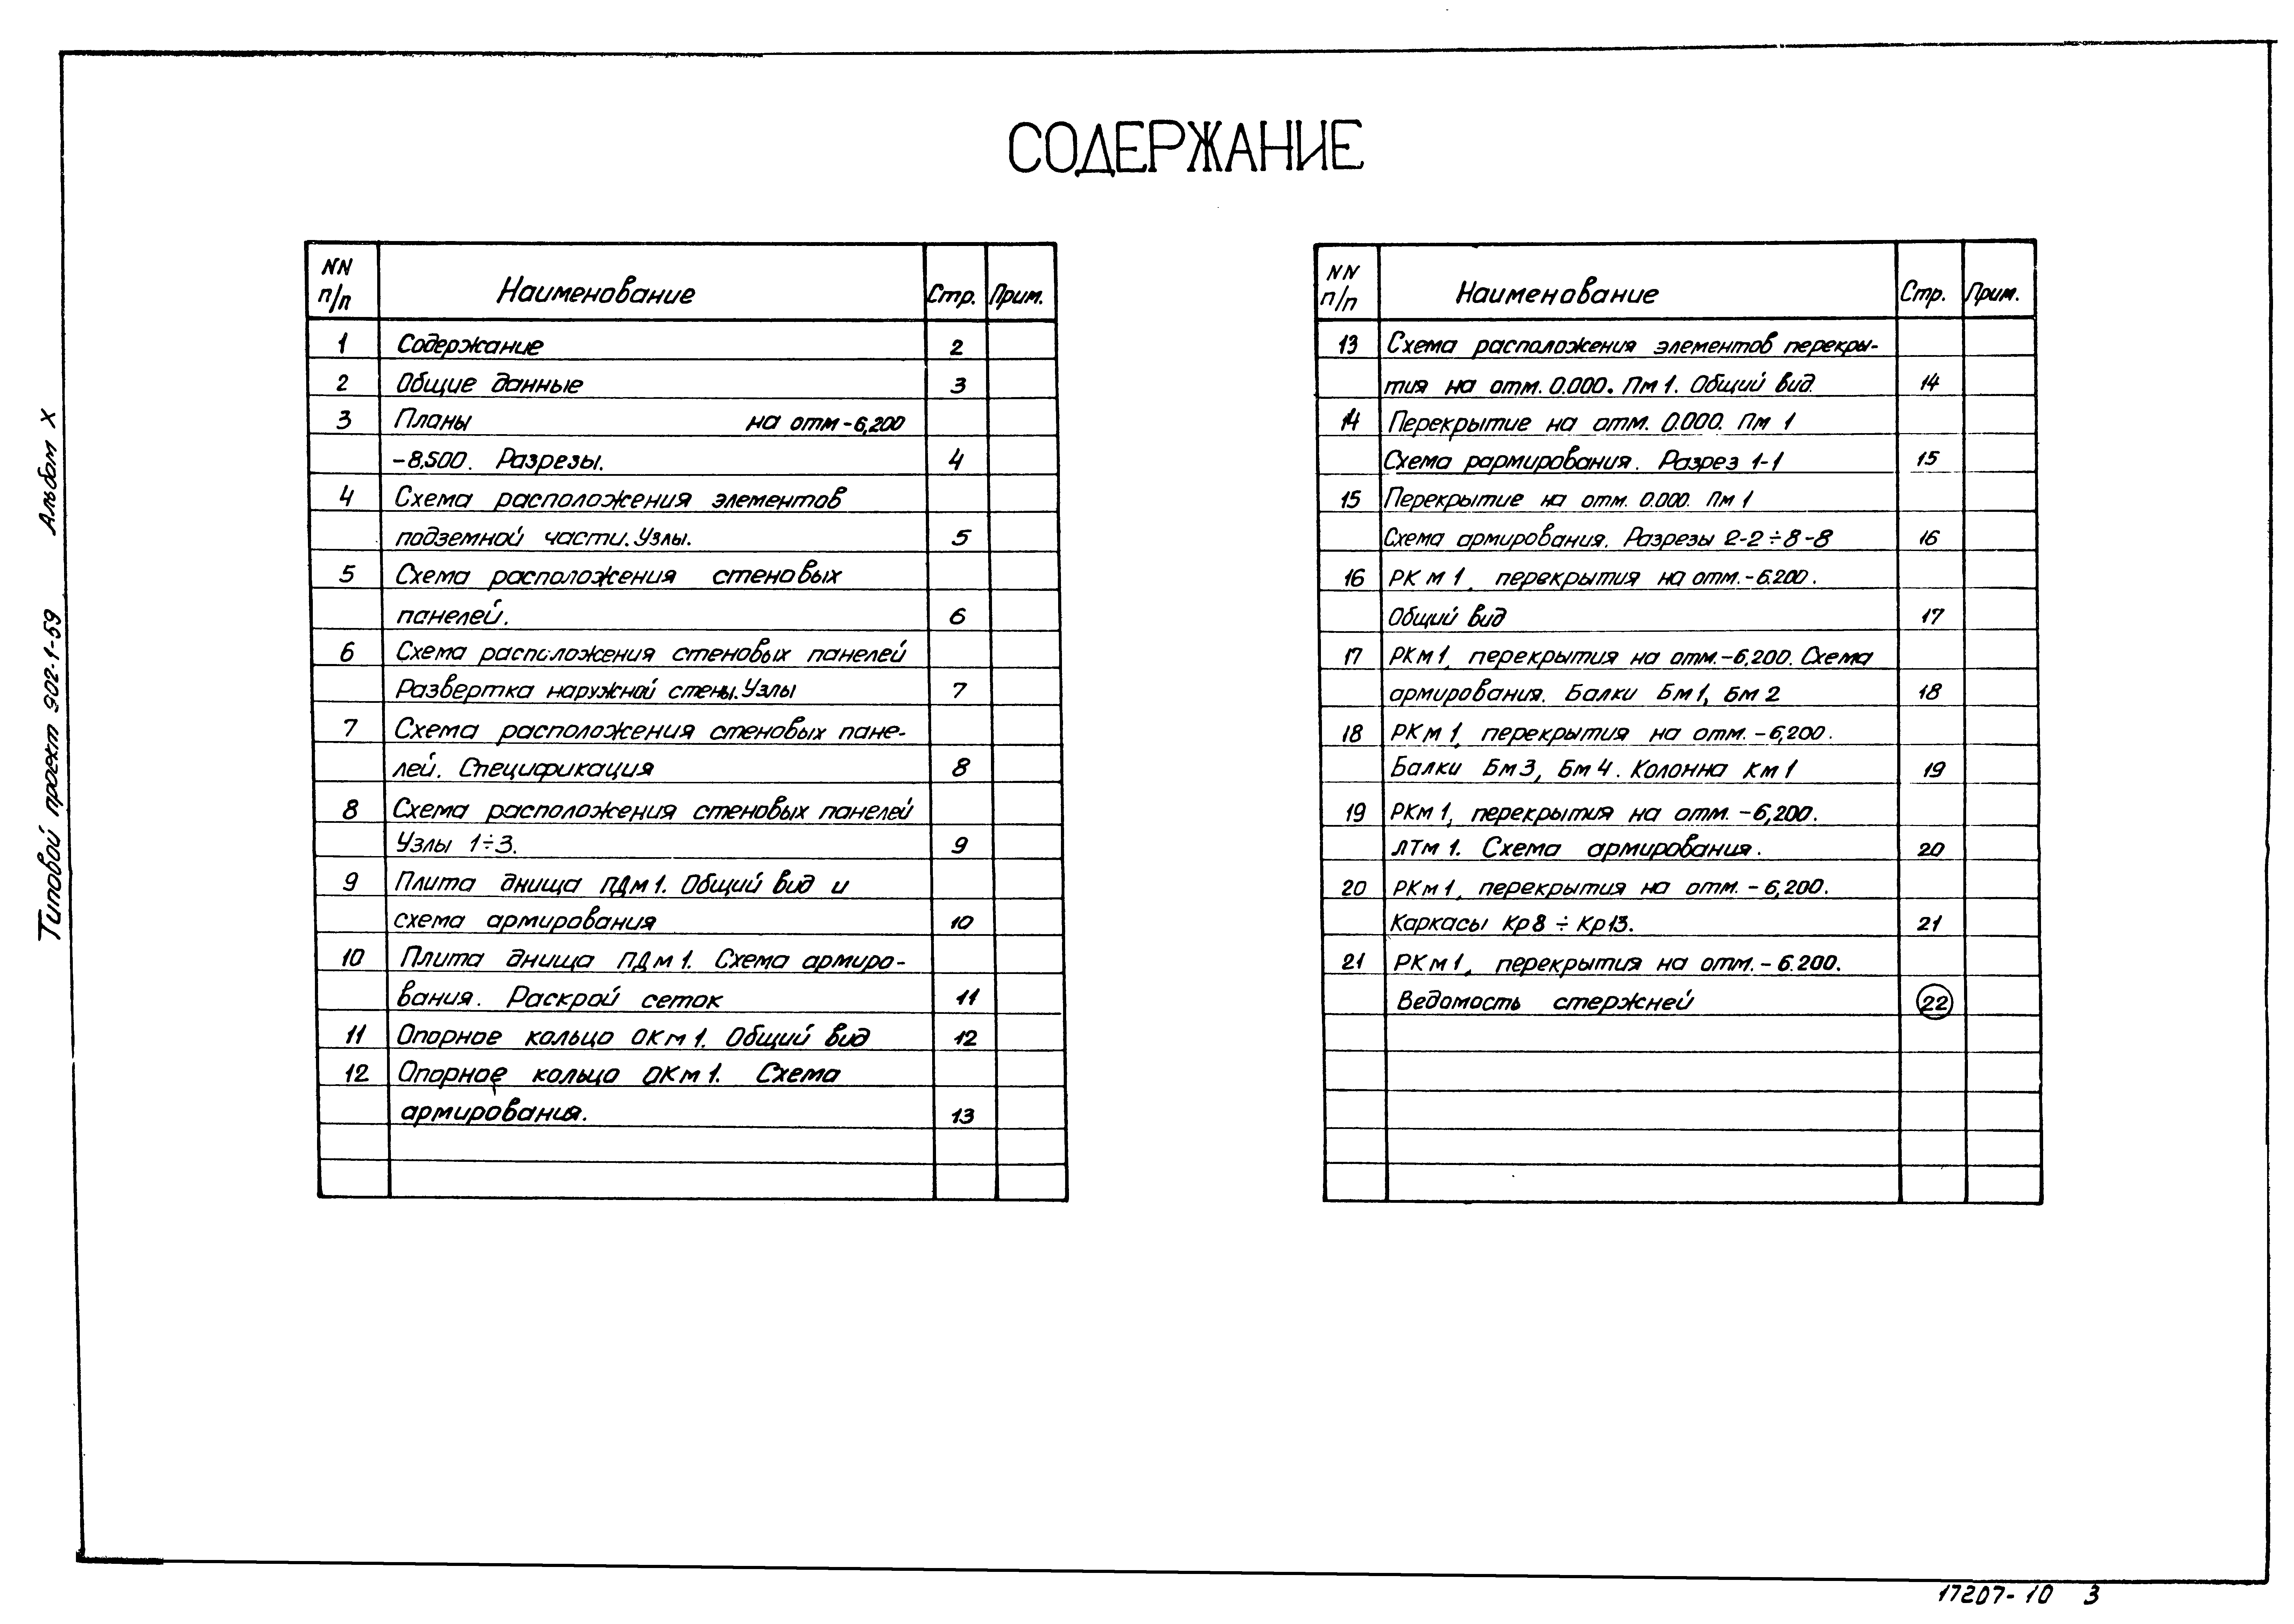 СОДЕРЖАНИЕ
Типовой проект 902-1-59 Альбом X
NN п/п Наименование Стр. Прим.
1 Содержание 2
2 Общие данные 3
3 Планы на отм -6,200
-8,500. Разрезы. 4
4 Схема расположения элементов
подземной части. Узлы. 5
5 Схема расположения стеновых
панелей. 6
6 Схема расположения стеновых панелей
Развертка наружной стены. Узлы 7
7 Схема расположения стеновых пане-
лей. Спецификация 8
8 Схема расположения стеновых панелей
Узлы 1÷3. 9
9 Плита днища ПДм1. Общий вид и
схема армирования 10
10 Плита днища ПДм1. Схема армиро-
вания. Раскрой сеток 11
11 Опорное кольцо ОКм1. Общий вид 12
12 Опорное кольцо ОКм1. Схема
армирования. 13
NN п/п Наименование Стр. Прим.
13 Схема расположения элементов перекры-
тия на отм. 0.000. Пм1. Общий вид. 14
14 Перекрытие на отм. 0.000. Пм 1
Схема рармирования. Разрез 1-1 15
15 Перекрытие на отм. 0.000. Пм 1
Схема армирования. Разрезы 2-2÷8-8 16
16 РКм1, перекрытия на отм.-6.200.
Общий вид 17
17 РКм1, перекрытия на отм.-6,200. Схема
армирования. Балки Бм1, Бм2 18
18 РКм1, перекрытия на отм. -6,200.
Балки Бм3, Бм4. Колонна Км1 19
19 РКм1, перекрытия на отм. -6,200.
ЛТм1. Схема армирования. 20
20 РКм1, перекрытия на отм. -6,200.
Каркасы Кр8 ÷ Кр13. 21
21 РКм1, перекрытия на отм.-6.200.
Ведомость стержней 22
17207-10 3